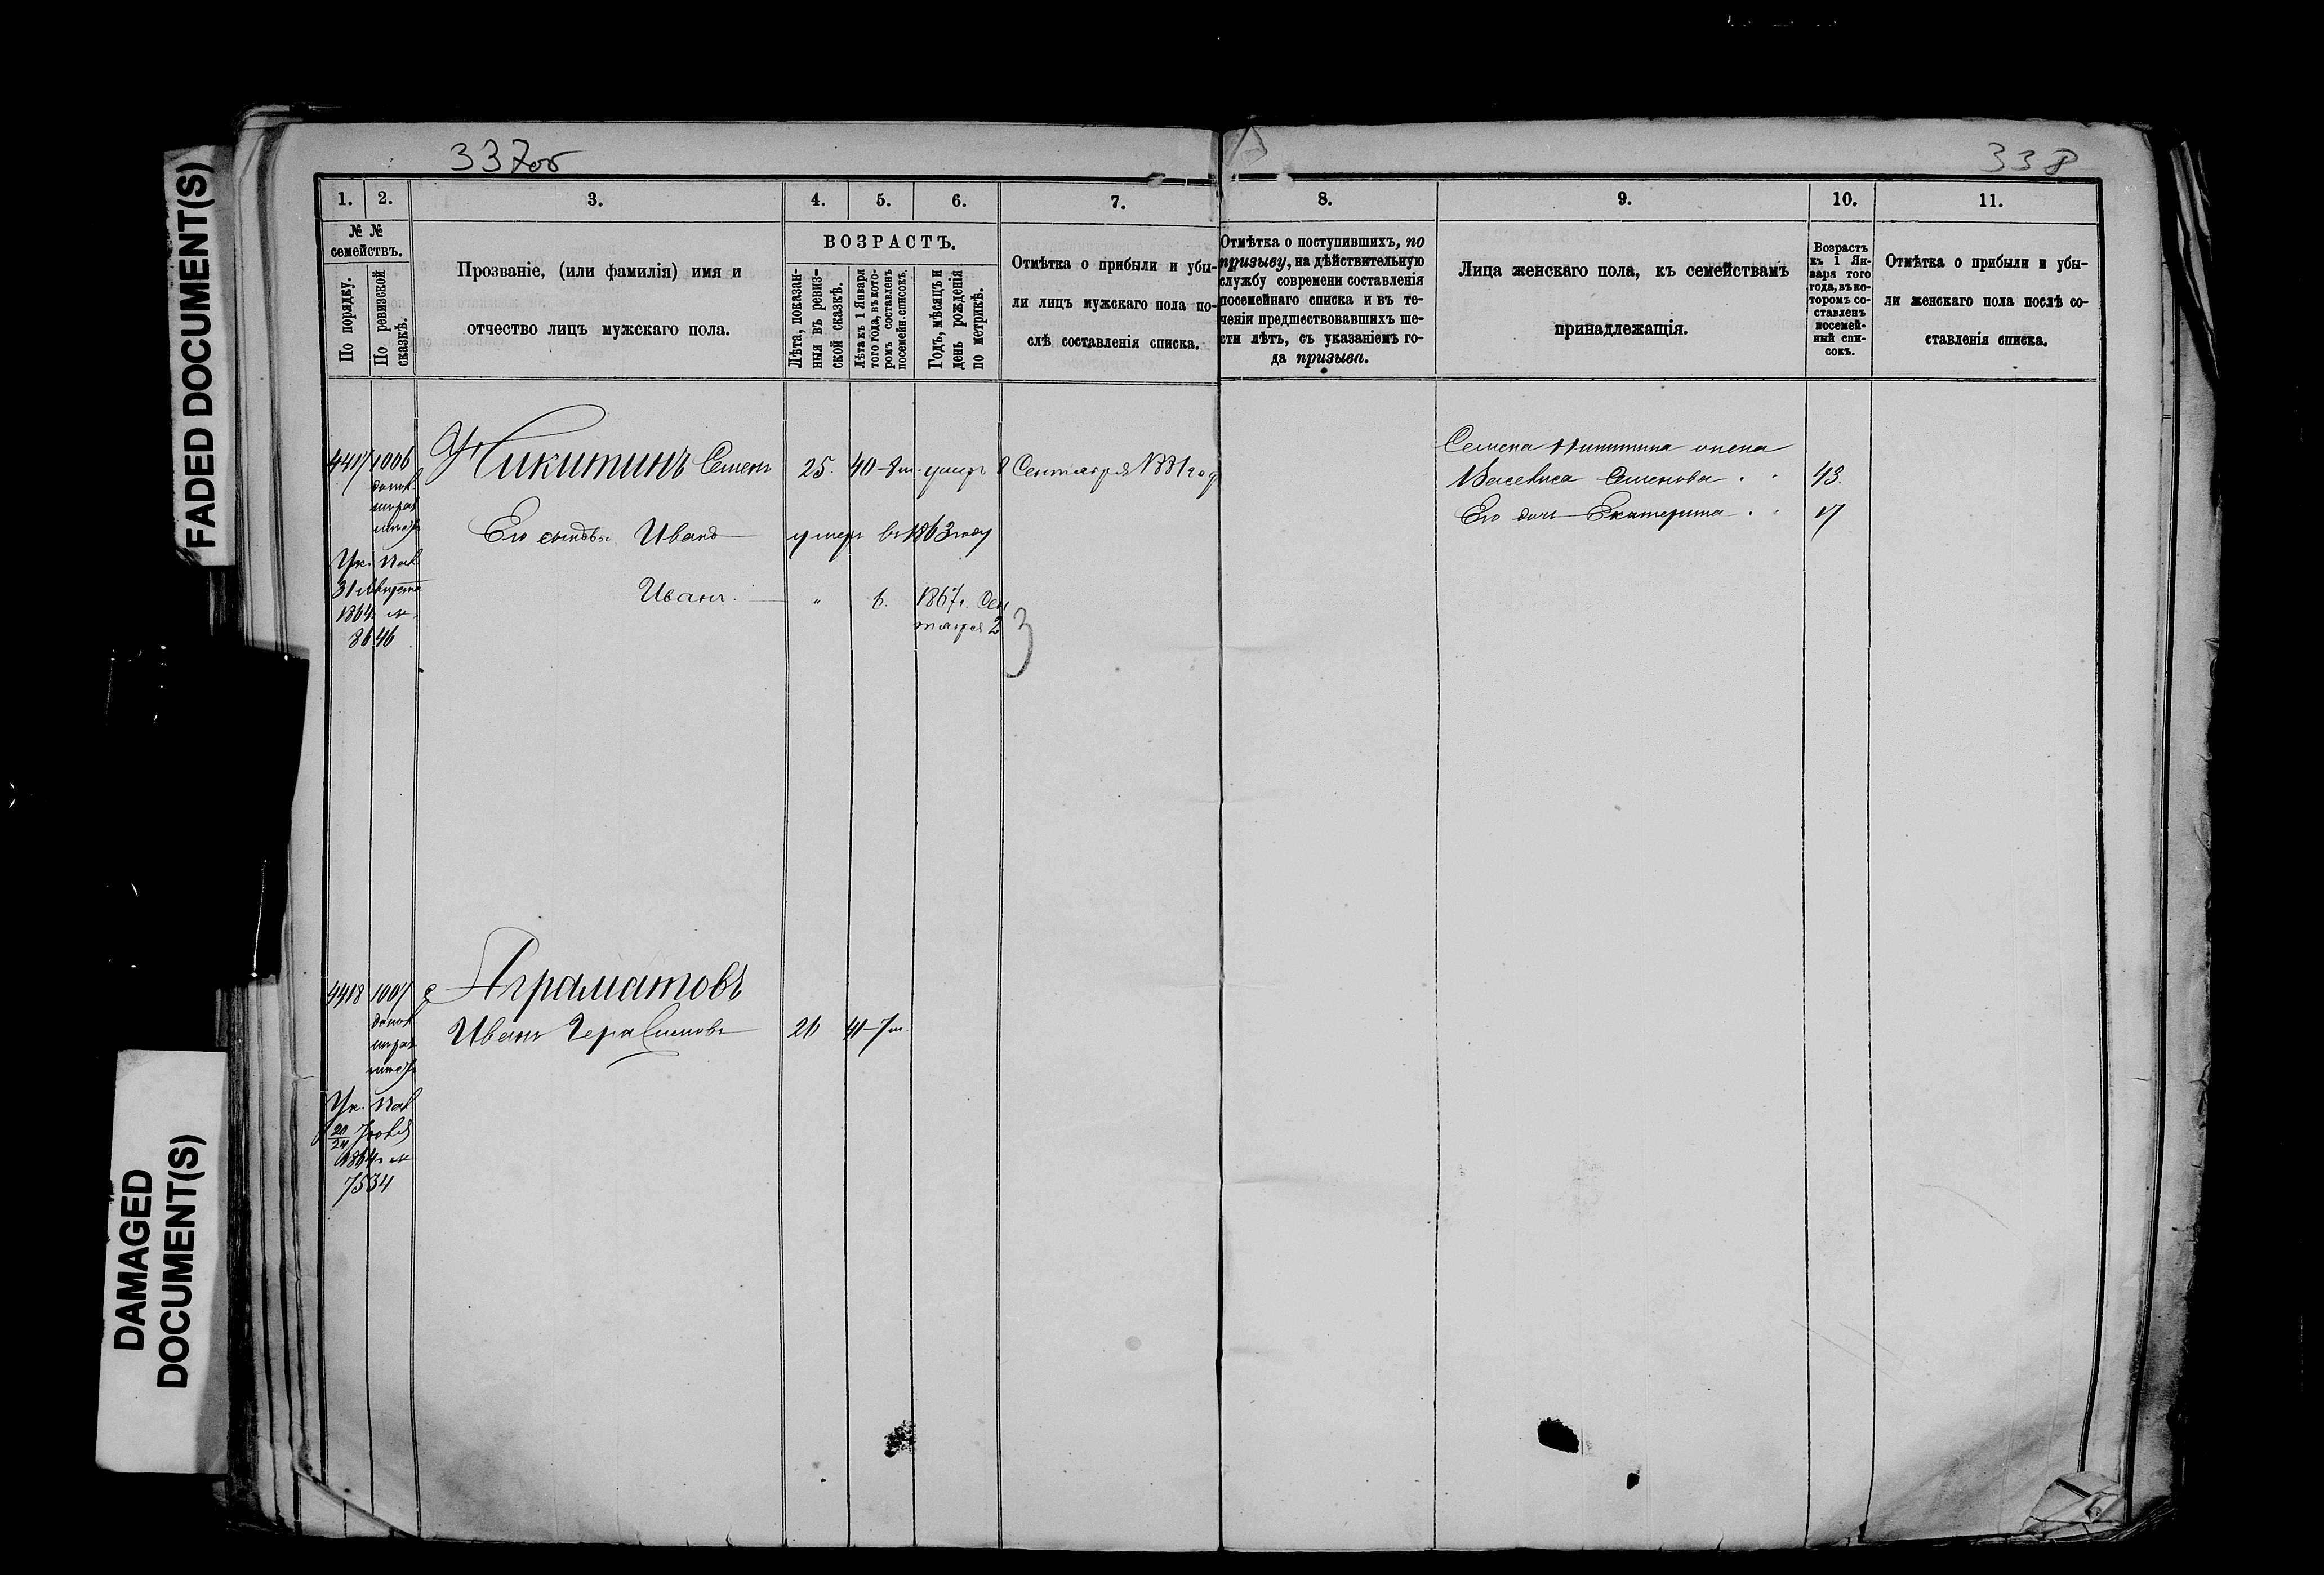 FADED DOCUMENT(S)
DAMAGED
DOCUMENT(S)
337об
338
1.
2.
3.
4.
5.
6.
7.
8.
9.
10.
11.
№ №
семействъ.
По порядку.
По ревизской
сказкѣ.
Прозваніе, (или фамилія) имя и
отчество лицъ мужскаго пола.
ВОЗРАСТЪ.
Лѣта, показан-
ныя въ ревиз-
ской сказкѣ.
Лѣта къ 1 Января
того года, въ кото-
ромъ составленъ
посемейн. списокъ.
Годъ, мѣсяцъ и
день рожденія
по метрикѣ.
Отмѣтка о прибыли и убы-
ли лицъ мужскаго пола по-
слѣ составленія списка.
Отмѣтка о поступившихъ, по
призыву, на дѣйствительную
службу современи составленія
посемейнаго списка и въ те-
ченіи предшествовавшихъ ше-
сти лѣтъ, съ указаніемъ го-
да призыва.
Лица женскаго пола, къ семействамъ
принадлежащія.
Возрастъ
къ 1 Ян-
варя того
года, въ ко-
торомъ со-
ставленъ
посемей-
ный спи-
сокъ.
Отмѣтка о прибыли и убы-
ли женскаго пола послѣ со-
ставленія списка.
4417 1006 Никитинъ Семенъ 25. 40-8м. умеръ 8 Сентября 1881 год
Его сыновья Иванъ умеръ въ 1863 году
Иванъ. " 6. 1867г. Сен
тября 2
3
Ук. Пал
31 Августа
1864 №
8646
Семена Никитина жена
Васелиса Семенова 43.
Его дочь Екатерина 17
4418 1007 Аграматовъ
Иванъ Герасимовъ 41-7м.
Ук. Пал
1864 №
7534